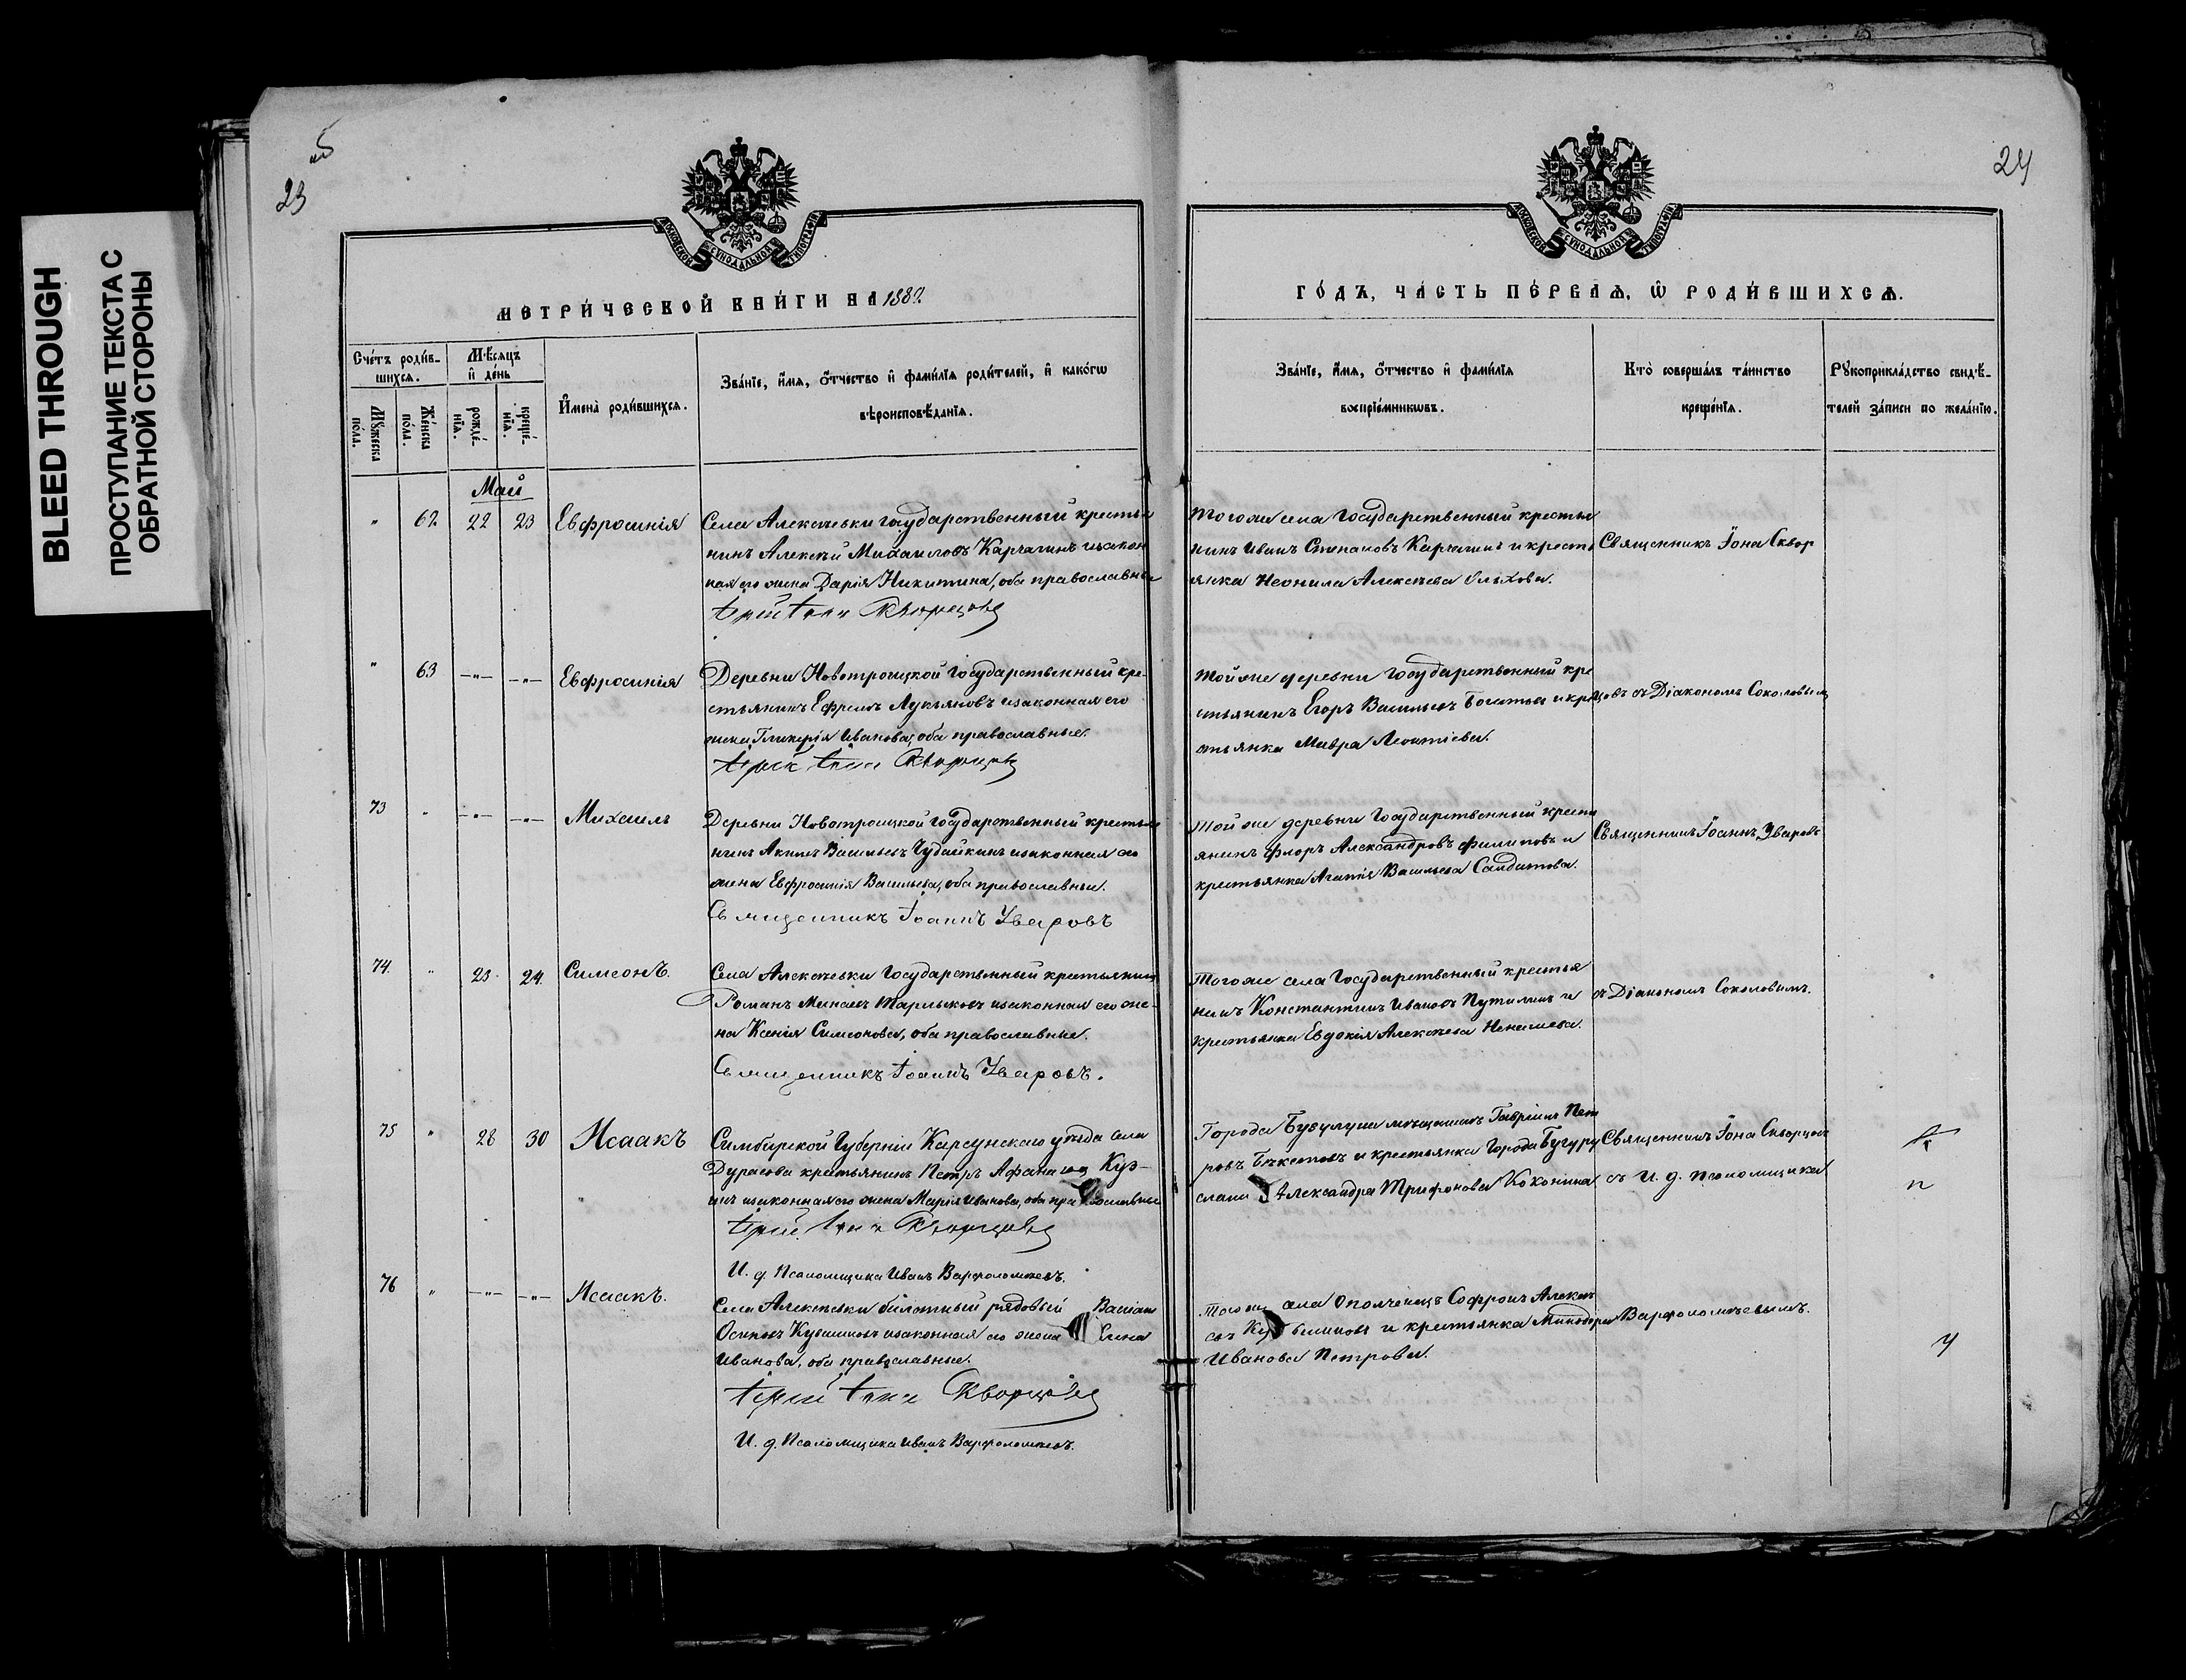 BLEED THROUGH
ПРОСТУПАНИЕ ТЕКСТА С
ОБРАТНОЙ СТОРОНЫ
23
МОСКОВСКОЙ СУНОДАЛЬНОЙ ТИПОГРАФІИ
МЕТРИ́ЧЕСКОЙ КНИ́ГИ НА 1889.
Сче́тъ роди́в-
шихсѧ.
Мѣ́сяцъ
и҆ де́нь
Мꙋ́жеска
по́ла.
Же́нска
по́ла.
рожде́-
нїѧ.
креще́-
нїѧ.
И҆мена̀ роди́вшихсѧ.
Зва́нїе, и҆́мѧ, ѻ҆́тчество и҆ фами́лїѧ роди́телей, и҆ како́гѡ
вѣроисповѣ́данїѧ.
Май
" 62 22 23 Евфросинія
Села Алексѣевки государственный крестья
нинъ Алексѣй Михаиловъ Карчагинъ изакон
ная его жена Дарія Никитина, оба православные
Іерей Іона Скворцовъ
" 63 -"- -"- Евфросинія
Деревни Новотроицкой Государственный кре-
стьянинъ Ефремъ Лукьяновъ изаконная его
жена Гликерія Иванова, оба православные.
Іерей Іона Скворцовъ
73 " -"- -"- Михаилъ
Деревни Новотроицкой государственный крестья
нинъ Акимъ Васильевъ Чудайкинъ изаконная его
жена Евфросинія Васильева, оба православные.
Священникъ Іоаннъ Уваровъ
74. " 23. 24. Симеонъ.
Села Алексѣевки Государственный крестьянинъ
Романъ Минаевъ изаконная его же-
на Ксенія Симеонова, оба православные.
Священникъ Іоаннъ Уваровъ.
75 " 28 30 Исаакъ
Симбирской Губерніи Карсунскаго уѣзда села
Дурасова крестьянинъ Петръ
изаконная его жена Марія Иванова, оба православные
Іерей Іона Скворцовъ
И. д. Псаломщика Иванъ Варфоломеевъ.
76 " -"- -"- Исаакъ.
Села Алексѣевки билетный рядовый
Осиповъ изаконная его жена Елена
Иванова, оба православные.
Іерей Іона Скворцовъ
И. д. Псаломщика Иванъ Варфоломеевъ.
24
МОСКОВСКОЙ СУНОДАЛЬНОЙ ТИПОГРАФІИ
ГО́ДЪ, ЧА́СТЬ ПЕ́РВАѦ, Ѡ҆ РОДИ́ВШИХСѦ.
Зва́нїе, и҆́мѧ, ѻ҆́тчество и҆ фами́лїѧ
воспрїе́мникѡвъ.
Кто̀ соверша́лъ та́инство
креще́нїѧ.
Рꙋкоприкла́дство свидѣ́-
телей за́писи по жела́нїю.
Тогоже села Государственный крестья
нинъ Иванъ Степановъ Карчагинъ и кресть
янка Неонила Алексѣева Ольхова.
Священникъ Іона Сквор
Той же деревни Государственный кре
стьянинъ Егоръ Васильевъ и кре
стьянка Мавра Леонтіева.
цовъ съ Діакономъ Соколовымъ
Той же деревни Государственный кресть
янинъ Флоръ Александровъ Филиповъ и
крестьянка Агапія Васильева Салдатова.
Священникъ Іоаннъ Уваровъ
Тогоже села Государственный крестья
нинъ Константинъ Ивановъ Путилинъ и
крестьянка Евдокія Алексѣева Ненашева.
съ Діакономъ Соколовымъ.
Города Бузулука мѣщанинъ Гавріилъ Пет
ровъ Бѣкетовъ и крестьянка Города Бугуру
слана Александра Трифонова Коконина
Священникъ Іона Скворцовъ
съ И. д. псаломщика
Тогоже села Ополченецъ Софронъ Алексѣ
евъ и крестьянка Минодора
Иванова Петрова.
Варфоломѣевымъ.